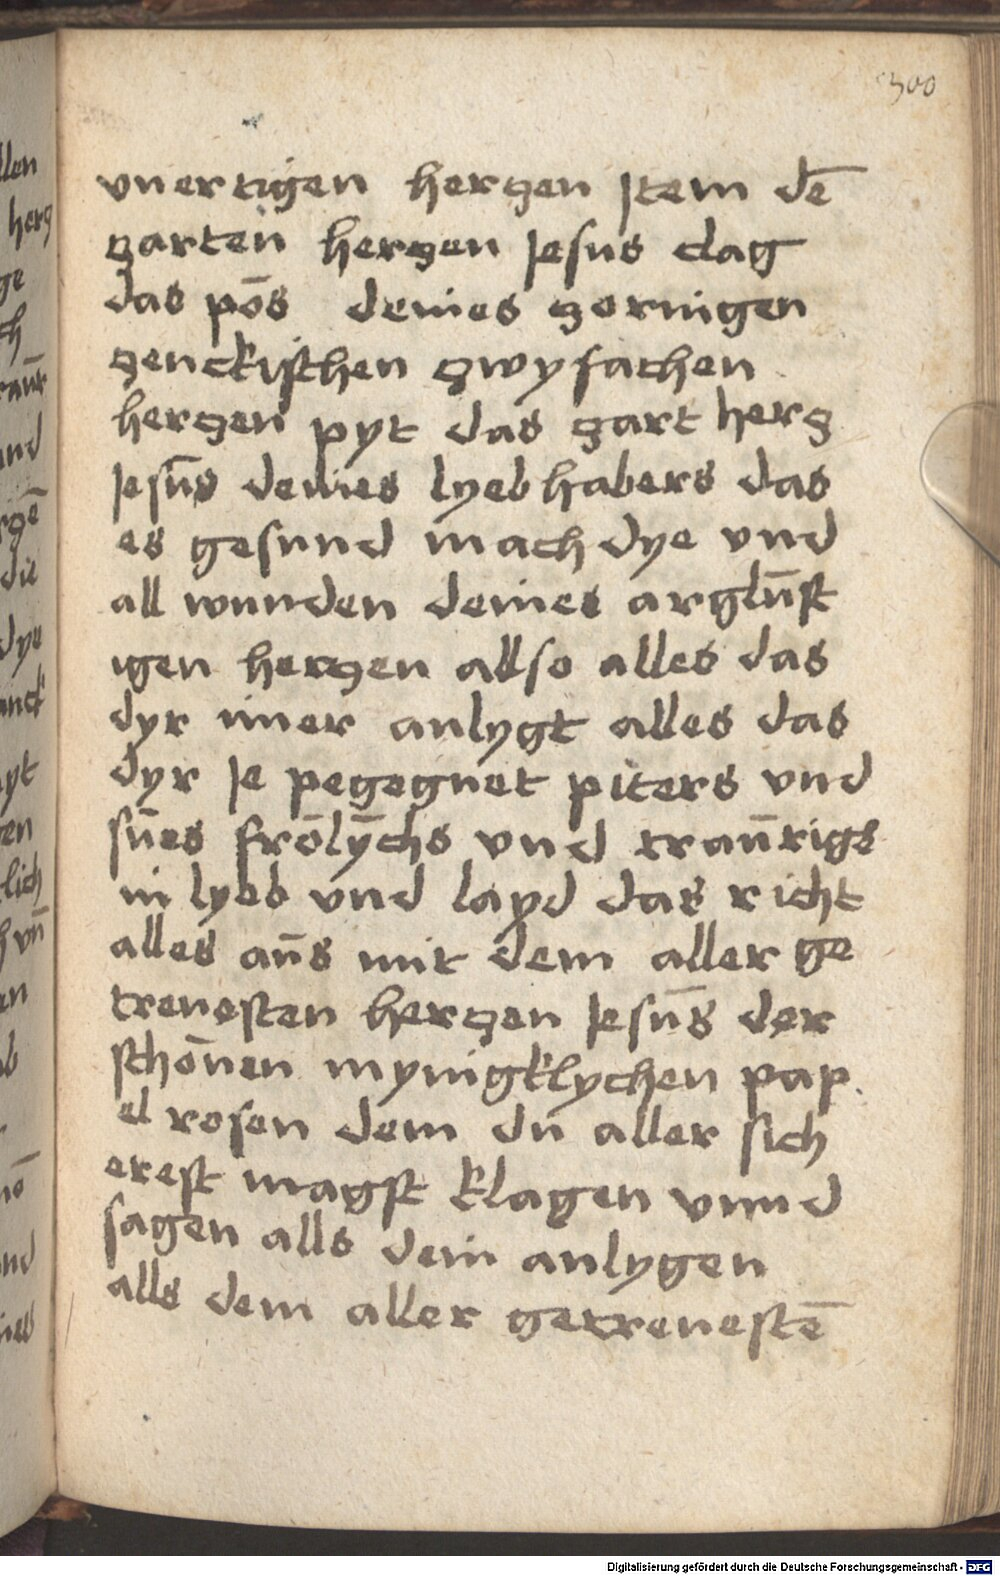 300
vnertigen herczen Item dē
zarten herczen Jesus clag
das pōs deines zornigen
zenckischen zwyfachen
herczen pyt das zart hercz
Jesūs deines lyebhabers das
es gesund mach dye vnd
all wunden deines arglūst
igen herczen allso alles das
dyr iner anlygt alles das
dyr Je pegegnet piters vnd
sūes frōlȳchs vnd traūrigs
in lyeb vnd layd das richt
alles aūs mit dem aller ge
treuesten herczen Jesūs der
schōnen mynigklychen pap
el rosen dem du aller sich
erest magst klagen vnnd
sagen alls dein anlygen
alls dem aller getreuestē
Digitalisierung gefördert durch die Deutsche Forschungsgemeinschaft - DFG